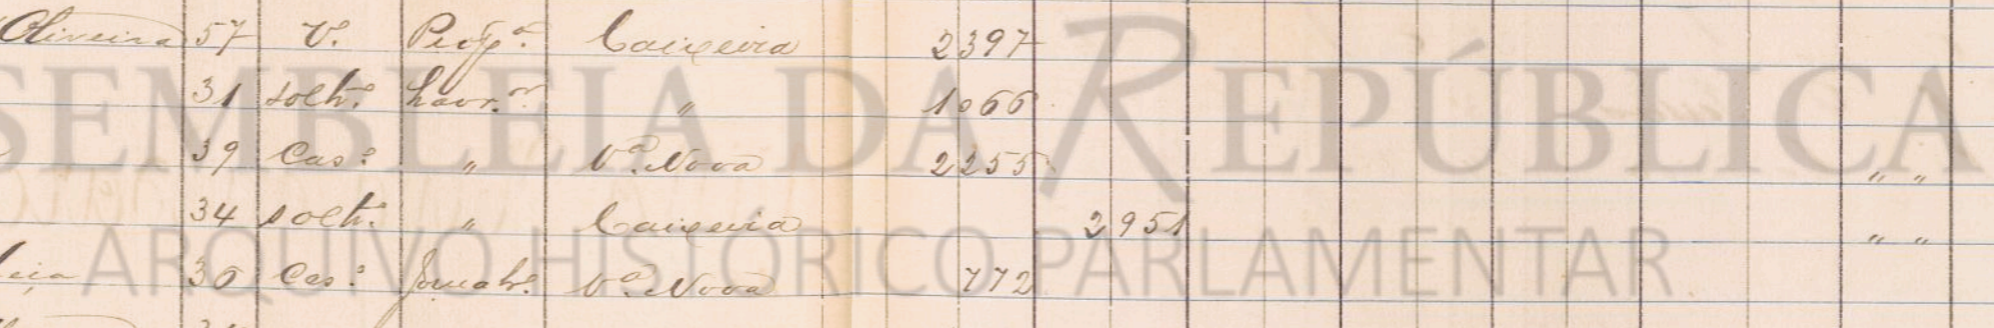 Oliveira 57 V.º Propr.º Caixeira 2397
31 solt.º Lavr.or " 1066
39 Cas.º " V.ª Nova 2255 " "
34 solt.º " Caixeira 2951 " "
30 Cas.º Jornal.º V.ª Nova 772
ASSEMBLEIA DA REPÚBLICA
ARQUIVO HISTÓRICO PARLAMENTAR